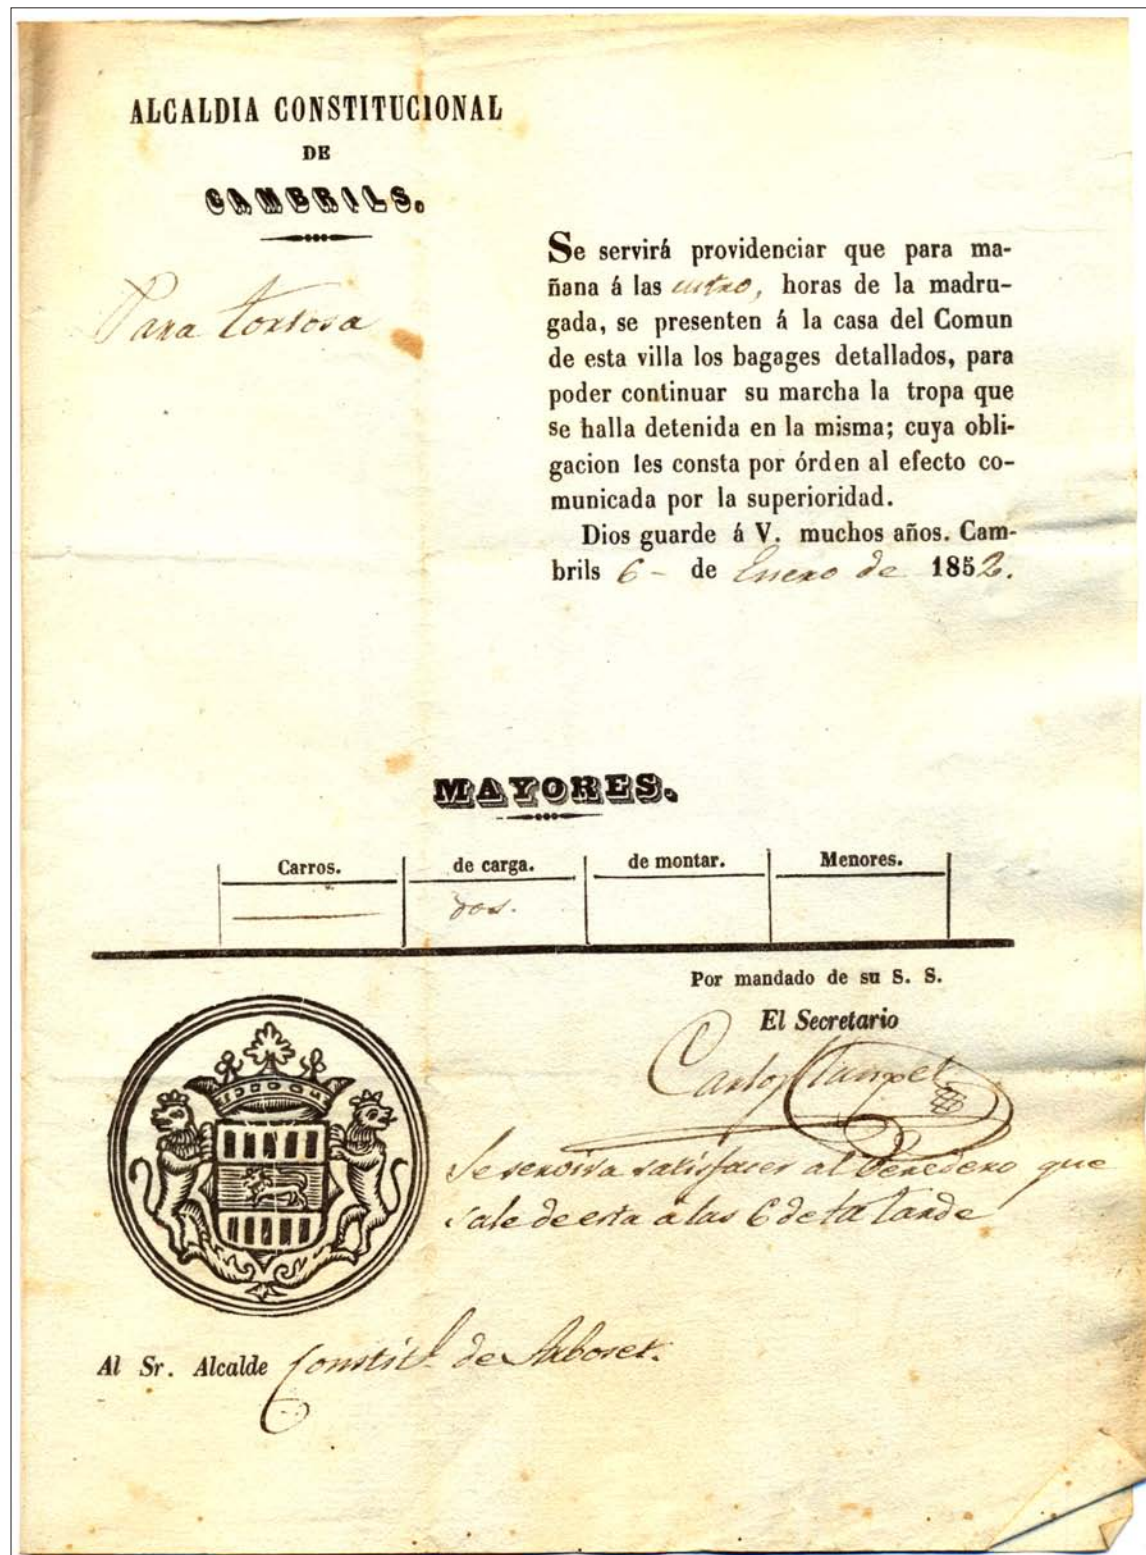 ALCALDIA CONSTITUCIONAL
DE
CAMBRILS.
Para Tortosa
Se servirá providenciar que para ma-
ñana á las cuatro, horas de la madru-
gada, se presenten á la casa del Comun
de esta villa los bagages detallados, para
poder continuar su marcha la tropa que
se halla detenida en la misma; cuya obli-
gacion les consta por órden al efecto co-
municada por la superioridad.
Dios guarde á V. muchos años. Cam-
brils 6 - de Enero de 1852.
MAYORES.
Carros. de carga. de montar. Menores.
dos.
Por mandado de su S. S.
El Secretario
Carlos
Se servira satisfacer al Veredero que
sale de esta a las 6 de la tarde
Al Sr. Alcalde Constitl. de Arboset.